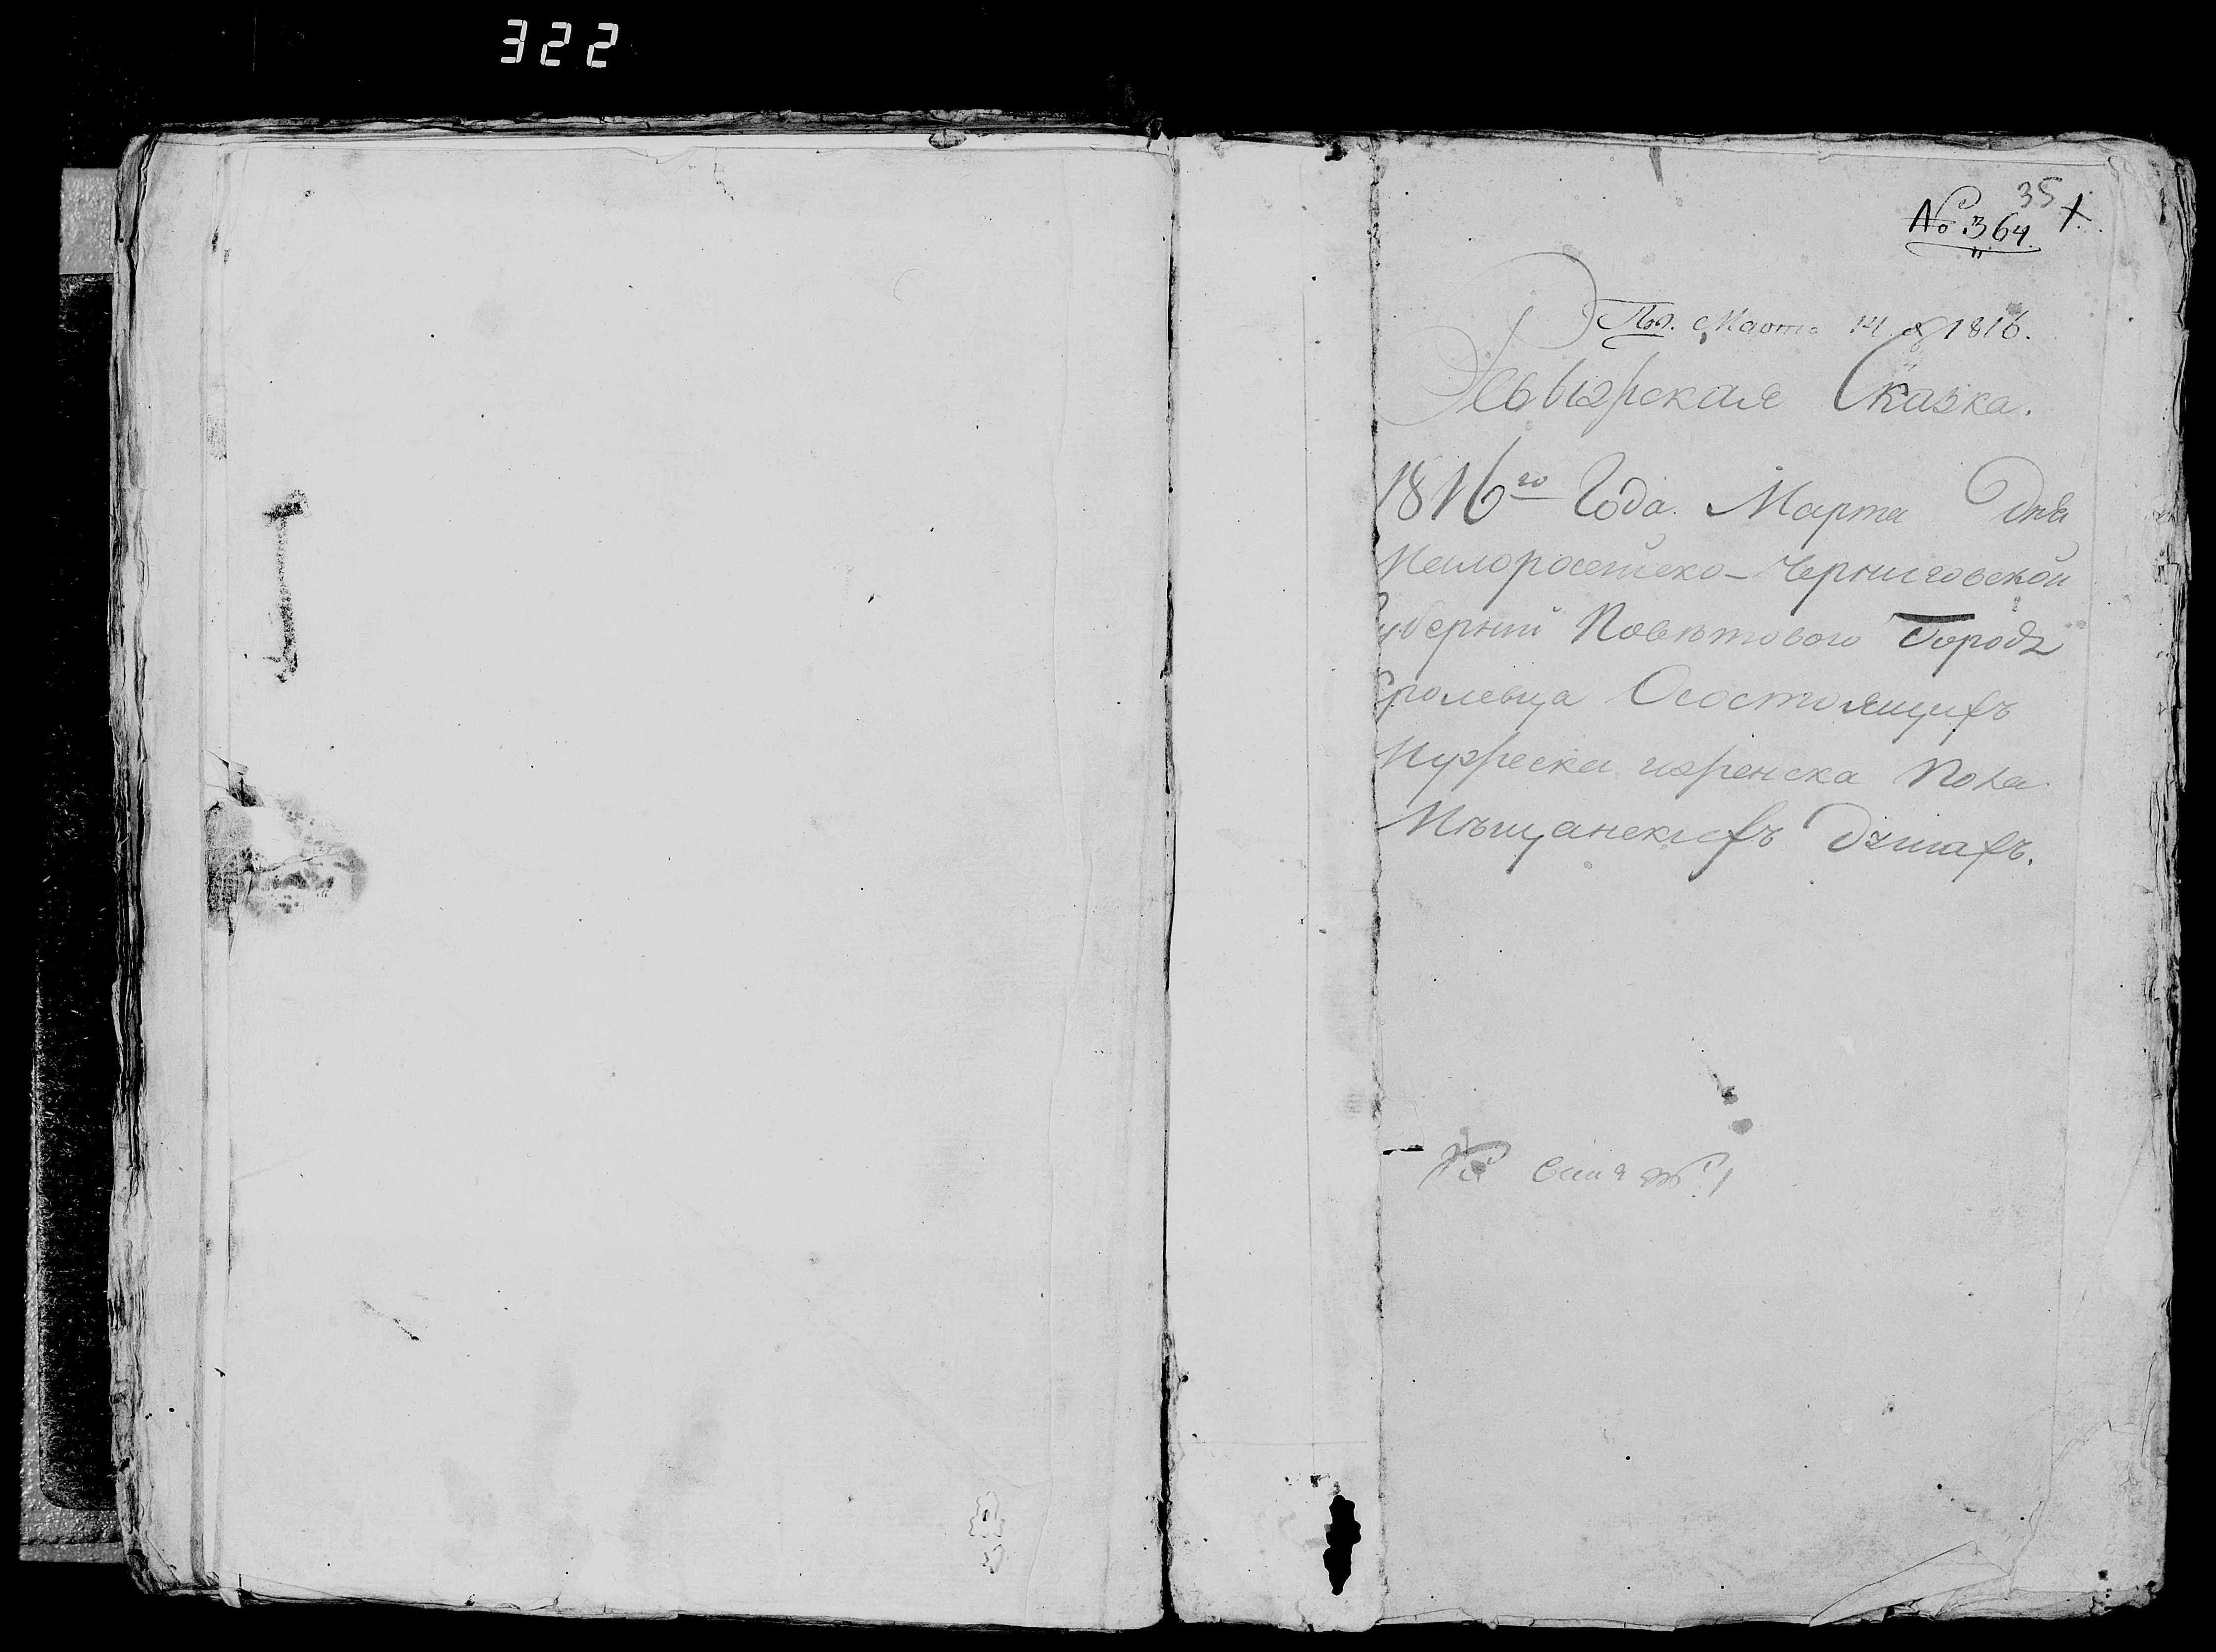 322
35
№ 364. X
Пол. Марта 14 д 1816.
Ревизская Сказка.
1816го Года. Марта Дня
Малоросейско-Черниговской
Губернии Повѣтового Города
Кролевца Осостоящихъ
Мужеска иженска Пола
Мѣщанскихъ Душахъ.
№ 1